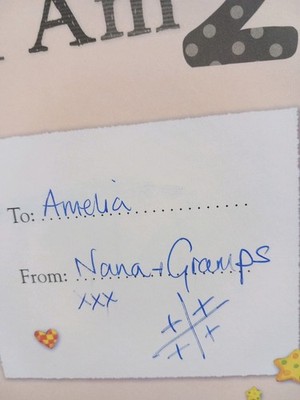 I Am 2
To: Amelia
From: Nana + Gramps
xxx